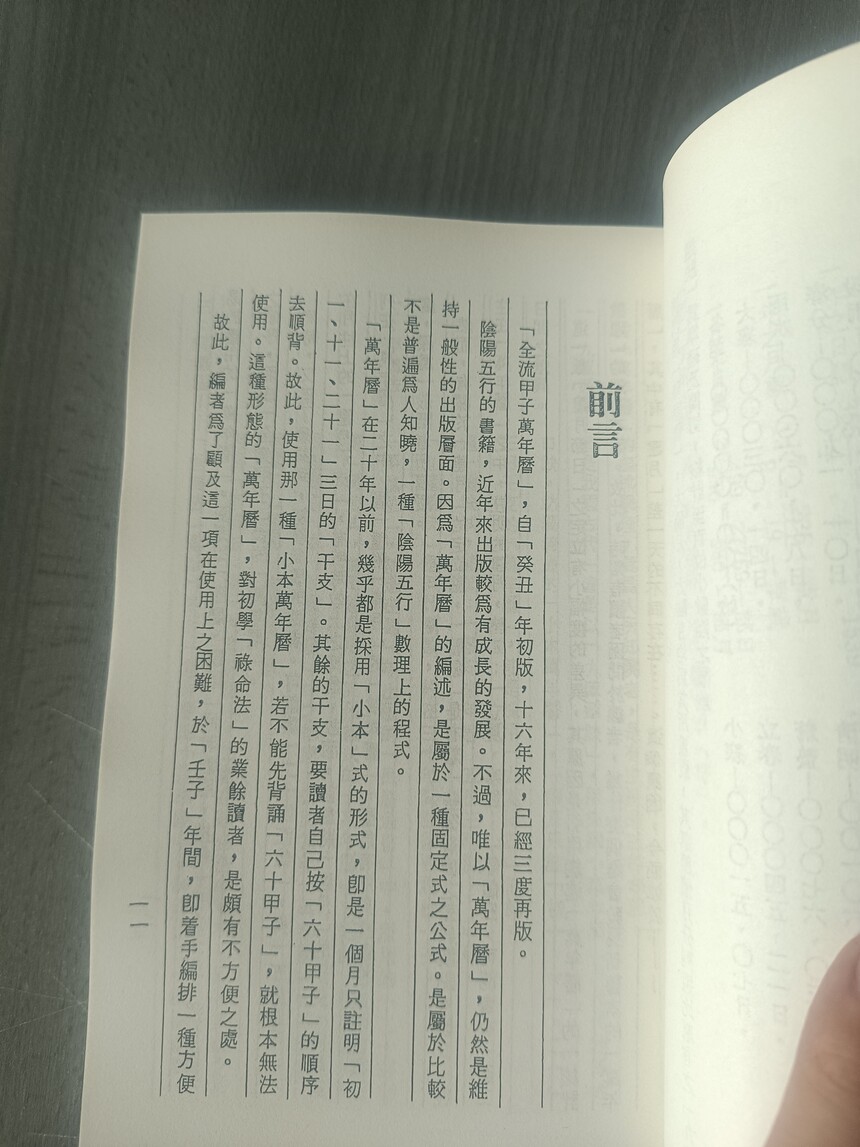 前言
「全流甲子萬年曆」，自「癸丑」年初版，十六年來，已經三度再版。
陰陽五行的書籍，近年來出版較爲有成長的發展。不過，唯以「萬年曆」，仍然是維
持一般性的出版層面。因爲「萬年曆」的編述，是屬於一種固定式之公式。是屬於比較
不是普遍爲人知曉，一種「陰陽五行」數理上的程式。
「萬年曆」在二十年以前，幾乎都是採用「小本」式的形式，卽是一個月只註明「初
一、十一、二十一」三日的「干支」。其餘的干支，要讀者自己按「六十甲子」的順序
去順背。故此，使用那一種「小本萬年曆」，若不能先背誦「六十甲子」，就根本無法
使用。這種形態的「萬年曆」，對初學「祿命法」的業餘讀者，是頗有不方便之處。
故此，編者爲了顧及這一項在使用上之困難，於「壬子」年間，卽着手編排一種方便
一一